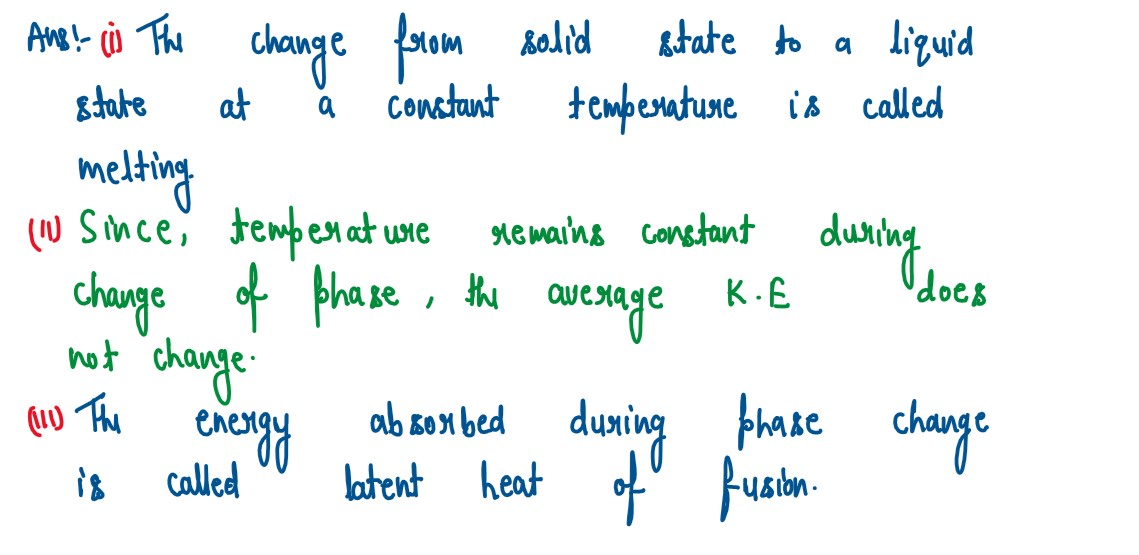 Ans:- (i) The change from solid state to a liquid
state at a constant temperature is called
melting.
(ii) Since, temperature remains constant during
change of phase, the average K.E does
not change.
(iii) The energy absorbed during phase change
is called latent heat of fusion.